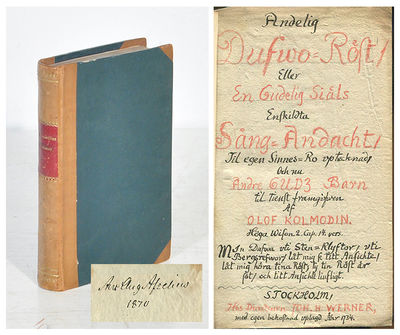 Arv. Aug. Afzelius
1870
Andelig
Dufwo=Röst/
Eller
En Gudelig Siäls
Enskildta
Sång=Andacht/
Til egen Sinnes=Ro uptecknad/
Och nu
Androm GUDZ Barn
til tienst framgifwen
Af
OLOF KOLMODIN.
Höga Wisan 2. Cap. 14. vers.
Min Dufwa uti Sten=Klyftor, uti
Bergzrefwor/ låt mig se titt Ansichte/
låt mig höra tina Röst; ty tin Röst är
söt/ och titt Ansichte liufligt.
STOCKHOLM/
Hos Directeuren JOH. H. WERNER,
med egen bekostnad uplagd Åhr 1734.